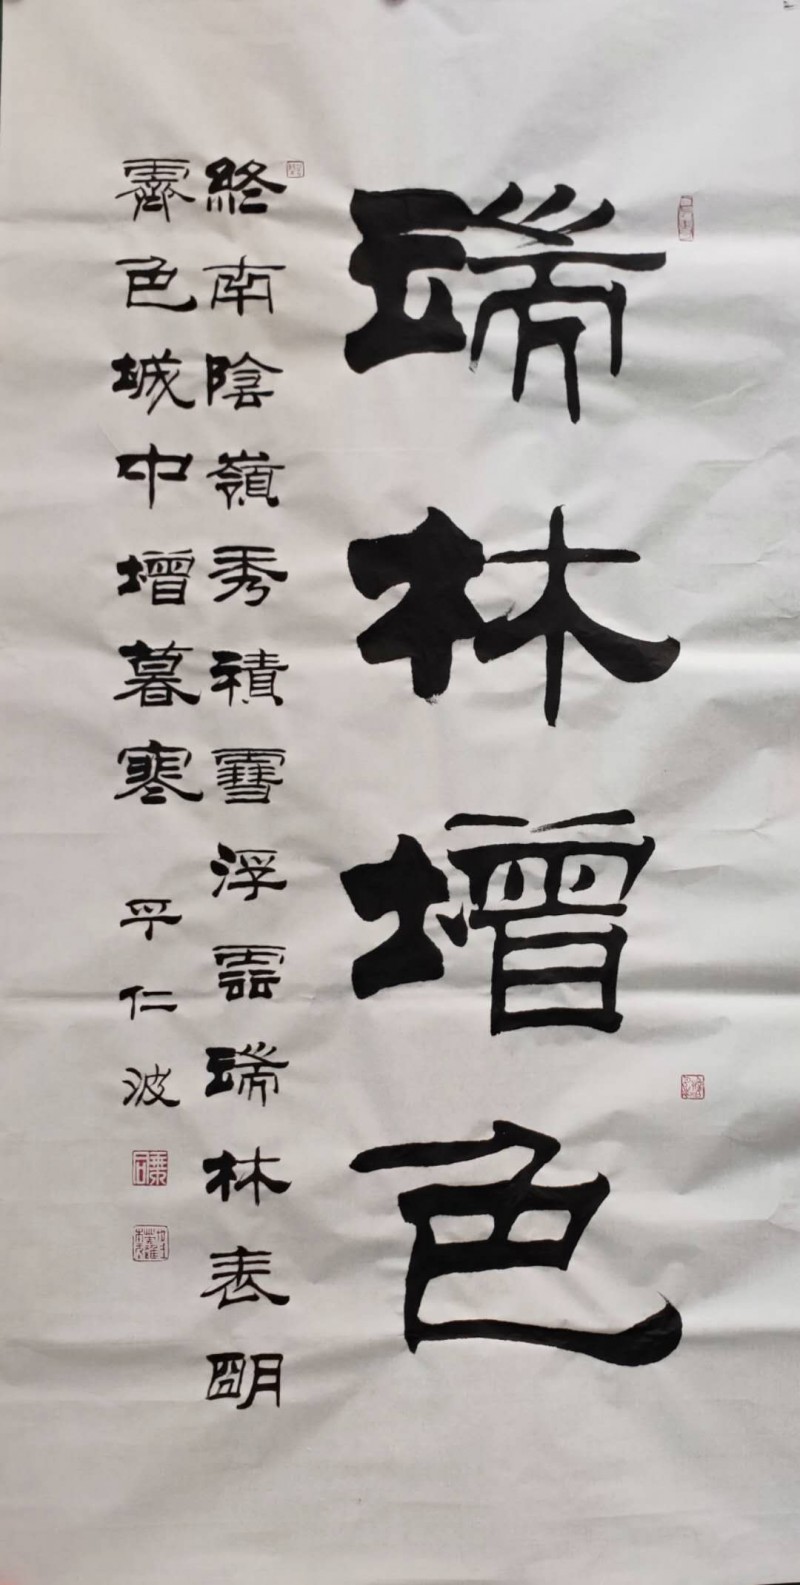 瑞林增色
終南陰嶺秀積雪浮雲瑞林表明
霽色城中增暮寒 平仁波